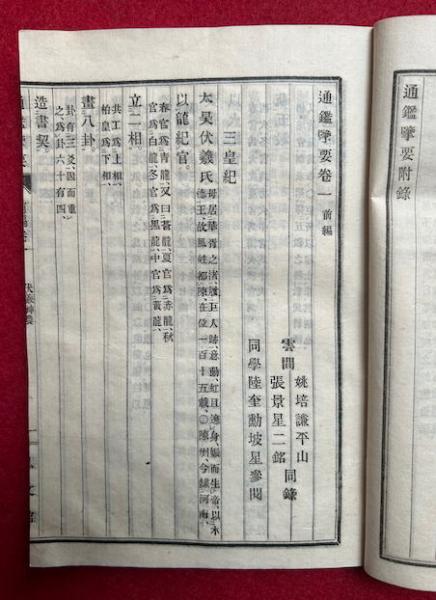 通鑑擥要附錄
通鑑擥要卷一 前編
姚培謙平山
雲間 同錄
張景星二銘
同學陸奎勳坡星參閱
三皇紀
太昊伏羲氏 母居華胥之渚,履巨人跡,意動,虹且遶身,娠而生帝,以木
德王,故風姓,都陳,在位一百十五載,○陳州,今屬河南,
以龍紀官。
春官爲靑龍,又曰蒼龍,夏官爲赤龍,秋
官爲白龍,冬官爲黑龍,中官爲黃龍,
立二相
共工爲上相,
柏皇爲下相,
畫八卦。
卦有三爻,因而重
之爲卦六十有四,
造書契。